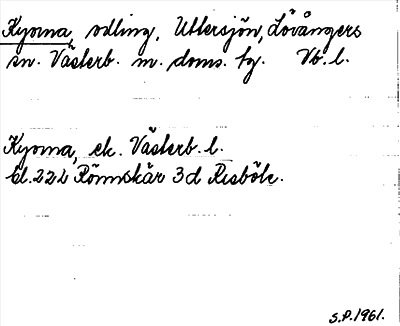 Kyorna, odling, Uttersjön, Lövångers
sn. Västerb. m. doms. fg. Vb. l.
Kyorna, ek. Västerb. l.
Bl. 222 Rönnskär 3d Risböle.
S.P. 1961.